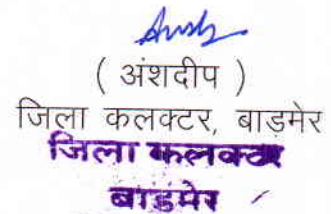 ( अंशदीप )
जिला कलक्टर, बाड़मेर
जिला कलक्टर
बाड़मेर